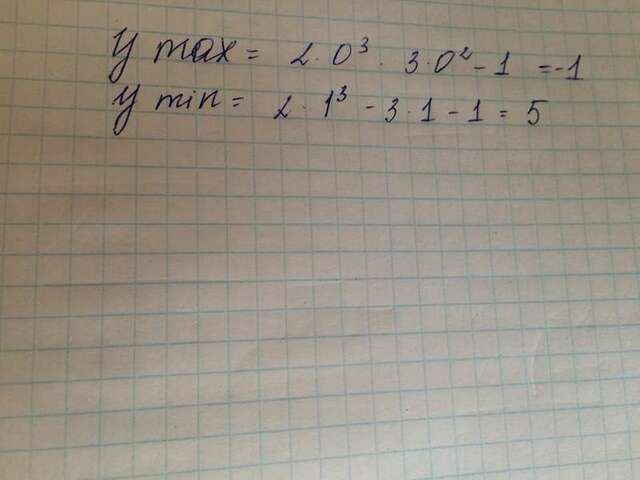 y max = 2·0³·3·0²-1=-1
y min = 2·1³-3·1-1=5